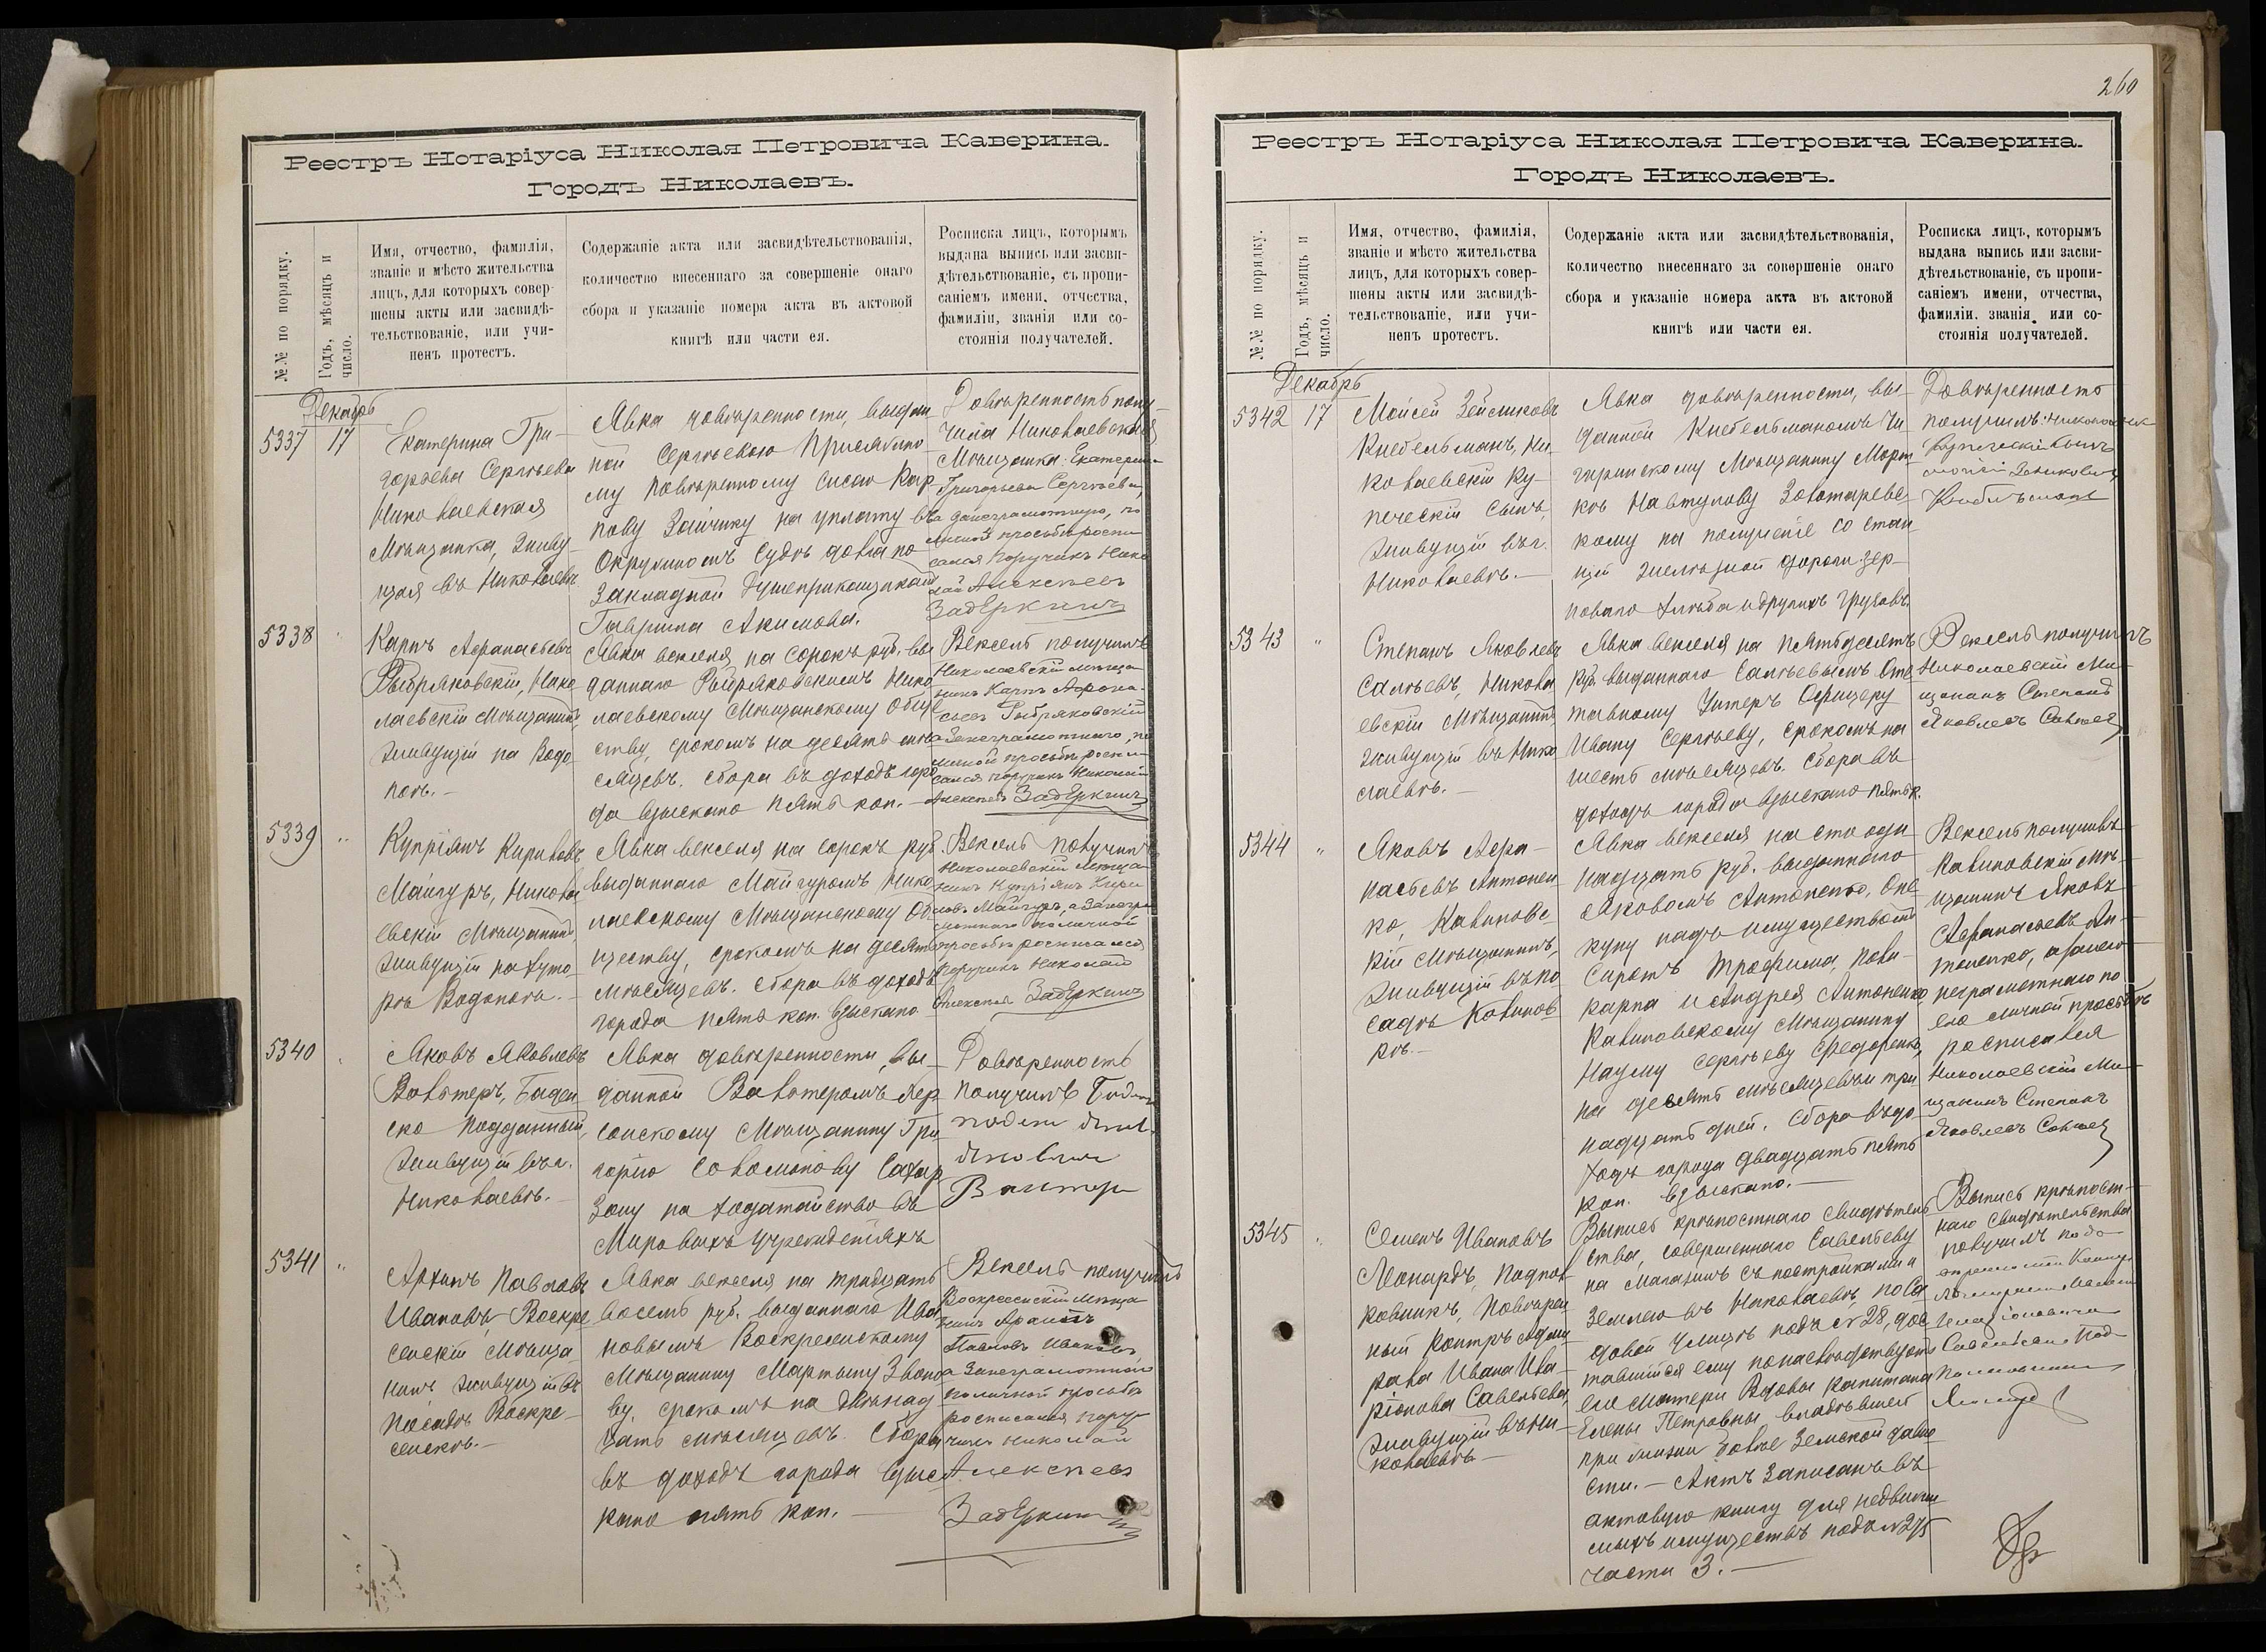 260
Реестръ Нотаріуса Николая Петровича Каверина.
Городъ Николаевъ.
№№ по порядку.
Годъ, мѣсяцъ и
число.
Имя, отчество, фамилія,
званіе и мѣсто жительства
лицъ, для которыхъ совер-
шены акты или засвидѣ-
тельствованіе, или учи-
ненъ протестъ.
Содержаніе акта или засвидѣтельствованія,
количество внесеннаго за совершеніе онаго
сбора и указаніе номера акта въ актовой
книгѣ или части ея.
Росписка лицъ, которымъ
выдана выпись или засви-
дѣтельствованіе, съ пропи-
саніемъ имени, отчества,
фамиліи, званія или со-
стоянія получателей.
Декабрь
5337 17
Екатерина Гри-
горьева Сергѣева
Николаевская
Мѣщанка, живу-
щая въ Николаевѣ
Явка довѣренности, выдан
ной Сергѣевою Присяжно
му Повѣренному
пову Зайчику на уплату въ
Окружномъ Судѣ долга по
закладной Душеприкащикамъ
Гавриила Акимова.
Довѣренность полу-
чила Николаевская
Мѣщанка Екатерина
Григорьева Сергѣева,
а за неграмотную, по
личной просьбѣ роспи
сался Поручикъ Нико
лай Алексѣевъ
Задеркинъ
5338 "
Карпъ Афанасьевъ
Рыбряковскій, Нико
лаевскій Мѣщанинъ,
живущій на Водо-
поѣ.-
Явка векселя на сорокъ руб. вы
даннаго Рыбряковскимъ Нико
лаевскому Мѣщанскому Обще
ству, срокомъ на девять мѣ
сяцевъ. Сбора въ доходъ горо
да взыскано пять коп.-
Вексель получилъ
Николаевскій мѣща
нинъ Карпъ Афона-
сьев Рыбряковскій
а За неграмотнаго, по
личной просьбѣ роспи
сался Поручикъ Николай
Алексѣевъ Задеркинъ
5339 "
Купріянъ Кириловъ
Майгуръ, Никола
евскій Мѣщанинъ,
живущій на Хуто-
рѣ Водопоѣ.-
Явка векселя на сорокъ руб.
выданнаго Майгуромъ Нико
лаевскому Мѣщанскому Об
ществу, срокомъ на девять
мѣсяцевъ. Сбора въ доходъ
города пять коп. взыскано.
Вексель получилъ
Николаевскій Мѣща
нинъ Купріянъ Кири
ловъ Майгуръ, а За негра
мотнаго по личной
просьбѣ росписался
Поручикъ Николай
Алексѣевъ Задеркинъ
5340 "
Яковъ Яковлевъ
Валтеръ, Баден
ско Подданный,
живущій въ г.
Николаевѣ.-
Явка довѣренности, вы-
данной Валтеромъ Хер
сонскому Мѣщанину Гри
горію Соломонову Сахар
зону на ходатайство въ
Мировыхъ учрежденіяхъ
Довѣренность
получилъ
5341 "
Архипъ Павловъ
Ивановъ, Воскре
сенскій Мѣща-
нинъ живущій въ
Посадѣ Воскре-
сенскѣ.-
Явка векселя, на тридцать
восемь руб. выданнаго Ива
новымъ Воскресенскому
Мѣщанину Мартыну Звоно
ву, срокомъ на двѣнад
цать мѣсяцевъ. Сбора
въ доходъ города взыс
кано пять коп.-
Вексель получилъ
Воскресенскій мѣща
нинъ Архипъ
Павловъ Ивановъ
а За неграмотнаго
по личной просьбѣ
росписался пору-
чикъ Николай
Алексѣевъ
Задеркинъ
Реестръ Нотаріуса Николая Петровича Каверина.
Городъ Николаевъ.
№№ по порядку.
Годъ, мѣсяцъ и
число.
Имя, отчество, фамилія,
званіе и мѣсто жительства
лицъ, для которыхъ совер-
шены акты или засвидѣ-
тельствованіе, или учи-
ненъ протестъ.
Содержаніе акта или засвидѣтельствованія,
количество внесеннаго за совершеніе онаго
сбора и указаніе номера акта въ актовой
книгѣ или части ея.
Росписка лицъ, которымъ
выдана выпись или засви-
дѣтельствованіе, съ пропи-
саніемъ имени, отчества,
фамиліи. званія или со-
стоянія получателей.
Декабрь
5342 17
Мойсей Зейликовъ
Кнебельманъ, Ни-
колаевскій Ку-
печескій сынъ,
живущій въ г.
Николаевѣ.-
Явка довѣренности, вы-
данной Кнебельманомъ Чи-
гиринскому Мѣщанину Морт
кѣ Навтулову Золотарев
кому на полученіе со стан
цій желѣзной дороги зер-
новаго хлѣба и другихъ грузовъ.
Довѣренность
получилъ
Купеческій сынъ
5343 "
Степанъ Яковлевъ
Салѣевъ, Никола
евскій Мѣщанинъ
живущій въ Нико
лаевѣ.-
Явка векселя на пятьдесятъ
руб. выданнаго Салѣевымъ Отс
тавному Унтеръ Офицеру
Ивану Сергѣеву, срокомъ на
шесть мѣсяцевъ. Сбора въ
доходъ города взыскано пять к.
Вексель получилъ
Николаевскій Ми-
щанинъ Степанъ
Яковлевъ Салѣев
5344 "
Яковъ Афа-
насьевъ Антонен
ко, Калиновс-
кій Мѣщанинъ,
живущій въ по
садѣ Калинов
кѣ.-
Явка векселя на сто оди
надцать руб. выданнаго
Яковомъ Антоненко, Опе
куну надъ имуществомъ
сиротъ Трофима, Поли-
карпа и Андрея Антоненко
Калиновскому Мѣщанину
Науму Сергѣеву Федоренко,
на девять мѣсяцевъ и три
надцать дней. Сбора въ до
ходъ города двадцать пять
коп. взыскано.-
Вексель получилъ
Калиновскій мѣ-
щанинъ Яковъ
Афанасьевъ Ан-
тоненко, а за него
неграмотнаго по
его личной просьбѣ
росписался
Николаевскій Ми-
щанинъ Степанъ
Яковлевъ Салѣев
5345 "
Семенъ Ивановъ
Монардъ, Подпол
ковникъ, Повѣрен
ный Контръ Адми
рала Ивана Ила-
ріонова Савельева,
живущій въ Ни-
колаевѣ-
Выпись крѣпостнаго свидѣтель
ства, совершеннаго Савельеву
на магазинъ съ постройками и
землею въ Николаевѣ, по Са
довой улицѣ подъ №28, дос
тавшійся ему по наслѣдству отъ
его матери Вдовы Капитана
Елены Петровны владѣвшей
при жизни болѣе Земской давно
сти.- Актъ записанъ въ
актовую книгу для недвижи
мыхъ имуществъ подъ №275
части 3.-
Выпись крѣпост-
наго свидѣтельства
получилъ по до-